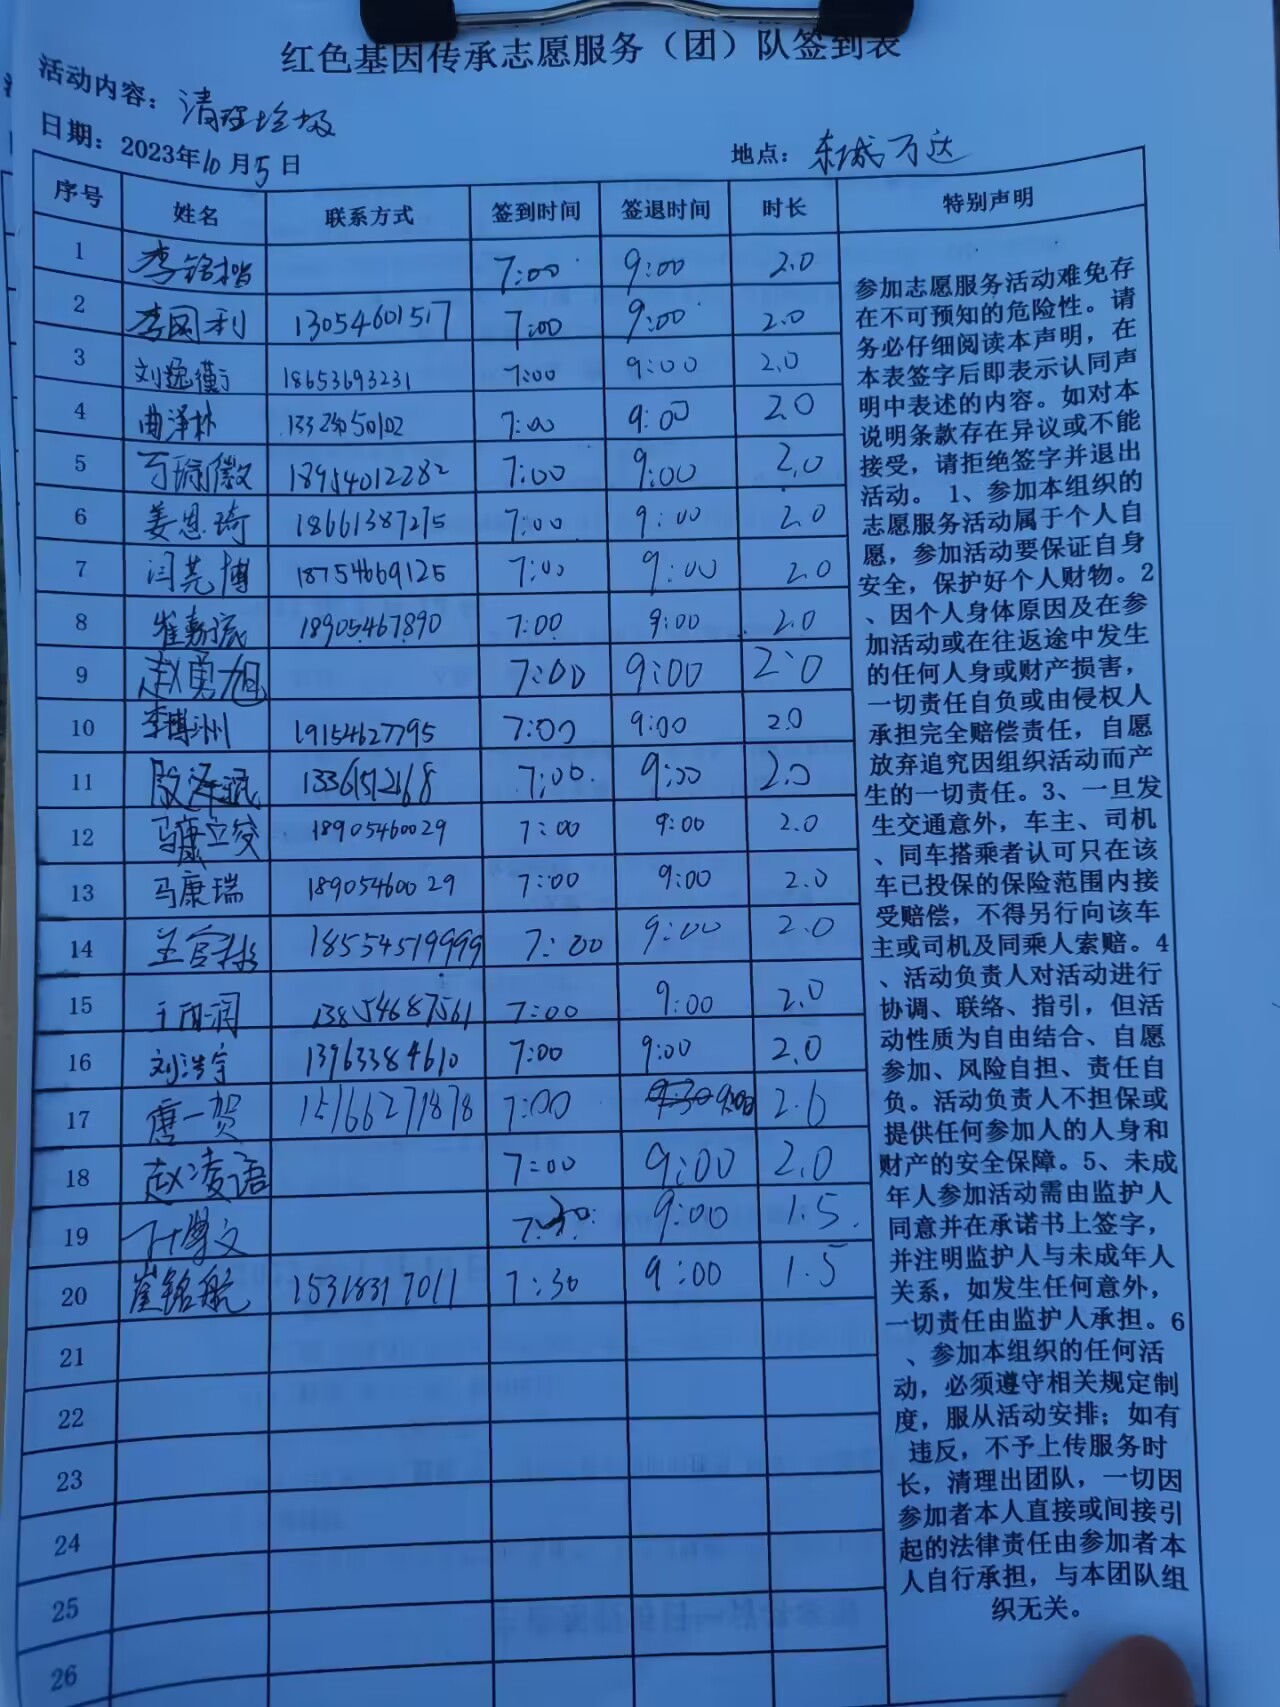 红色基因传承志愿服务（团）队签到表
活动内容：清理垃圾
日期：2023年10月5日 地点：东城万达
序号 姓名 联系方式 签到时间 签退时间 时长 特别声明
1 李铭楷 7:00 9:00 2.0
2 李国利 13054601517 7:00 9:00 2.0
3 刘逸衡 18653693231 7:00 9:00 2.0
4 曲泽朴 7:00 9:00 2.0
5 18954012282 7:00 9:00 2.0
6 姜恩琦 18661387275 7:00 9:00 2.0
7 闫芫博 18754669125 7:00 9:00 2.0
8 18905467890 7:00 9:00 2.0
9 赵勇旭 7:00 9:00 2.0
10 李博洲 19154627795 7:00 9:00 2.0
11 7:00 9:00 2.0
12 18905460029 7:00 9:00 2.0
13 马康瑞 18905460029 7:00 9:00 2.0
14 18554519999 7:00 9:00 2.0
15 13854687561 7:00 9:00 2.0
16 刘浩宇 13963384610 7:00 9:00 2.0
17 唐一贺 15166271878 7:00 9:00 2.0
18 赵凌语 7:00 9:00 2.0
19 7:30 9:00 1.5
20 崔铭航 15318317011 7:30 9:00 1.5
21
22
23
24
25
26
参加志愿服务活动难免存
在不可预知的危险性。请
务必仔细阅读本声明，在
本表签字后即表示认同声
明中表述的内容。如对本
说明条款存在异议或不能
接受，请拒绝签字并退出
活动。 1、参加本组织的
志愿服务活动属于个人自
愿，参加活动要保证自身
安全，保护好个人财物。2
、因个人身体原因及在参
加活动或在往返途中发生
的任何人身或财产损害，
一切责任自负或由侵权人
承担完全赔偿责任，自愿
放弃追究因组织活动而产
生的一切责任。3、一旦发
生交通意外，车主、司机
、同车搭乘者认可只在该
车已投保的保险范围内接
受赔偿，不得另行向该车
主或司机及同乘人索赔。4
、活动负责人对活动进行
协调、联络、指引，但活
动性质为自由结合、自愿
参加、风险自担、责任自
负。活动负责人不担保或
提供任何参加人的人身和
财产的安全保障。5、未成
年人参加活动需由监护人
同意并在承诺书上签字，
并注明监护人与未成年人
关系，如发生任何意外，
一切责任由监护人承担。6
、参加本组织的任何活
动，必须遵守相关规定制
度，服从活动安排；如有
违反，不予上传服务时
长，清理出团队，一切因
参加者本人直接或间接引
起的法律责任由参加者本
人自行承担，与本团队组
织无关。